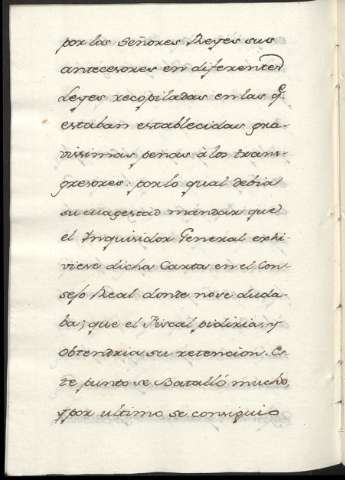 por los Señores Reyes sus
antecesores en diferentes
Leyes recopiladas en las q.e
estaban establecidas gra-
vissimas penas à los trans-
gresores: por lo qual debia
su magestad mandar que
el Inquisidor General exhi-
viese dicha Carta en el Con-
sejo Real donde no se duda-
ba; que el Fiscal pidiria, y
obtendria su retencion. Es-
te punto se Batalló mucho,
y por ultimo se consiguio